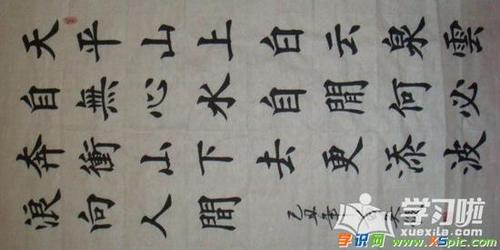 天平山上白云泉雲
自無心水自閒何必
奔衝山下去更添波
浪向人間
己丑年
学习啦
xuexila.com
学识网 www.XSpic.com